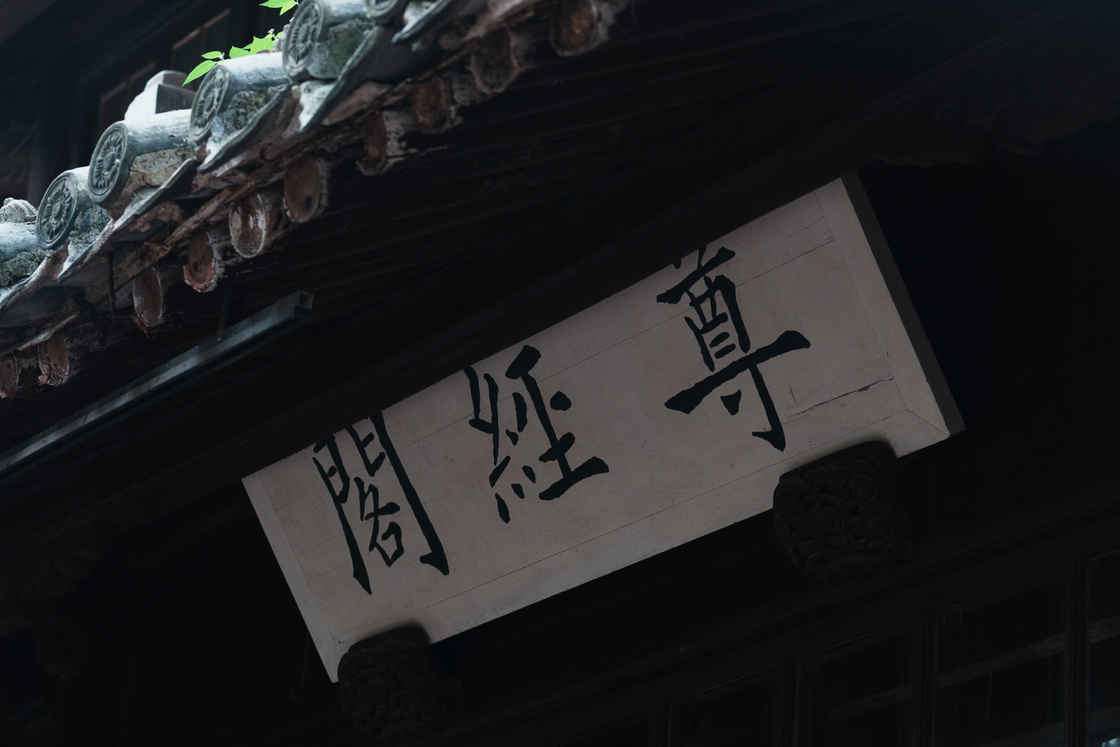 尊經閣